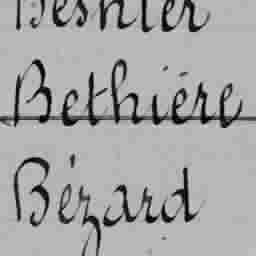 Beshier
Bethiére
Bézard